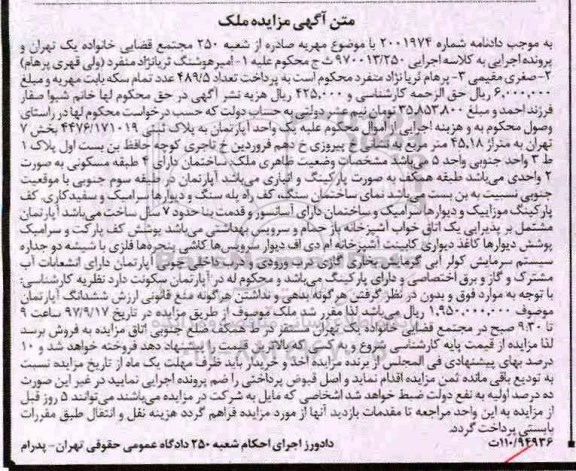 متن آگهی مزایده ملک
به موجب دادنامه شماره ۲۰۰۱۹۷۴ با موضوع مهریه صادره از شعبه ۲۵۰ مجتمع قضایی خانواده یک تهران و
پرونده اجرایی به کلاسه اجرایی ۹۷۰۰۱۳/۲۵۰ ث ج محکوم علیه ۱- امیرهوشنگ ثریانژاد منفرد (ولی قهری پرهام)
۲-صغری مقیمی ۳- پرهام ثریانژاد منفرد محکوم است به پرداخت تعداد ۴۸۹/۵ عدد تمام سکه بابت مهریه و مبلغ
۶,۰۰۰,۰۰۰ ریال حق الزحمه کارشناسی و ۴۲۵,۰۰۰ ریال هزینه نشر آگهی در حق محکوم لها خانم شیوا سقار
فرزند احمد و مبلغ ۳۵,۸۵۳,۸۰۰ تومان نیم عشر دولتی به حساب دولت که حسب درخواست محکوم لها در راستای
وصول محکوم به و هزینه اجرایی از اموال محکوم علیه یک واحد آپارتمان به پلاک ثبتی ۴۴۷۶/۱۷۱۰۱۹ بخش ۷
تهران به متراژ ۴۵,۱۸ متر مربع به نشانی خ پیروزی خ دهم فروردین خ تاجری کوچه حافظ بن بست اول پلاک ۱
ط ۳ واحد جنوبی واحد ۵ می‌باشد مشخصات وضعیت ظاهری ملک: ساختمان دارای ۴ طبقه مسکونی به صورت
۲ واحدی می‌باشد طبقه همکف به صورت پارکینگ و انباری می‌باشد آپارتمان در طبقه سوم جنوبی با موقعیت
جنوبی نسبت به بن بست می‌باشد نمای ساختمان سنگ، کف راه پله سنگ و دیوارها سرامیک و سفیدکاری. کف
پارکینگ موزاییک و دیوارها سرامیک و ساختمان دارای آسانسور و قدمت بنا حدود ۷ سال ساخت می‌باشد آپارتمان
مشتمل بر پذیرایی یک اتاق خواب آشپزخانه باز حمام و سرویس بهداشتی می‌باشد پوشش کف پارکت و سرامیک
پوشش دیوارها کاغذ دیواری کابینت آشپزخانه ام دی اف دیوار سرویس‌ها کاشی پنجره‌ها فلزی با شیشه دو جداره
سیستم سرمایش کولر آبی گرمایش بخاری گازی درب ورودی و درب داخلی چوبی آپارتمان دارای انشعابات آب
مشترک و گاز و برق اختصاصی و دارای پارکینگ می‌باشد و محکوم له در آپارتمان سکونت دارد نظریه کارشناسی:
با توجه به موارد فوق و بدون در نظر گرفتن هرگونه بدهی و نداشتن هرگونه منع قانونی ارزش ششدانگ آپارتمان
موصوف ۱,۹۵۰,۰۰۰,۰۰۰ ریال می‌باشد لذا مقرر شد ملک موصوف از طریق مزایده در تاریخ ۹۷/۹/۱۷ ساعت ۹
تا ۹:۳۰ صبح در مجتمع قضایی خانواده یک تهران مستقر در ط همکف ضلع جنوبی اتاق مزایده به فروش برسد
لذا مزایده از قیمت پایه کارشناسی شروع و به کسی که بالاترین قیمت را پیشنهاد دهد فروخته خواهد شد و ۱۰
درصد بهای پیشنهادی فی المجلس از برنده مزایده اخذ و خریدار باید ظرف مهلت یک ماه از تاریخ مزایده نسبت
به تودیع باقی مانده ثمن مزایده اقدام نماید و اصل فیوض پرداختی را ضم پرونده اجرایی نمایید در غیر این صورت
ده درصد اولیه به نفع دولت ضبط خواهد شد اشخاصی که مایل به شرکت در مزایده می‌باشند می‌توانند ۵ روز قبل
از مزایده به این واحد مراجعه تا مقدمات بازدید آنها از مورد مزایده فراهم گردد هزینه نقل و انتقال طبق مقررات
بایستی پرداخت گردد.
۱۱۰/۹۴۹۳۶ت دادورز اجرای احکام شعبه ۲۵۰ دادگاه عمومی حقوقی تهران- پدرام